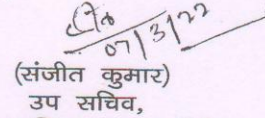 07/3/22
(संजीत कुमार)
उप सचिव,